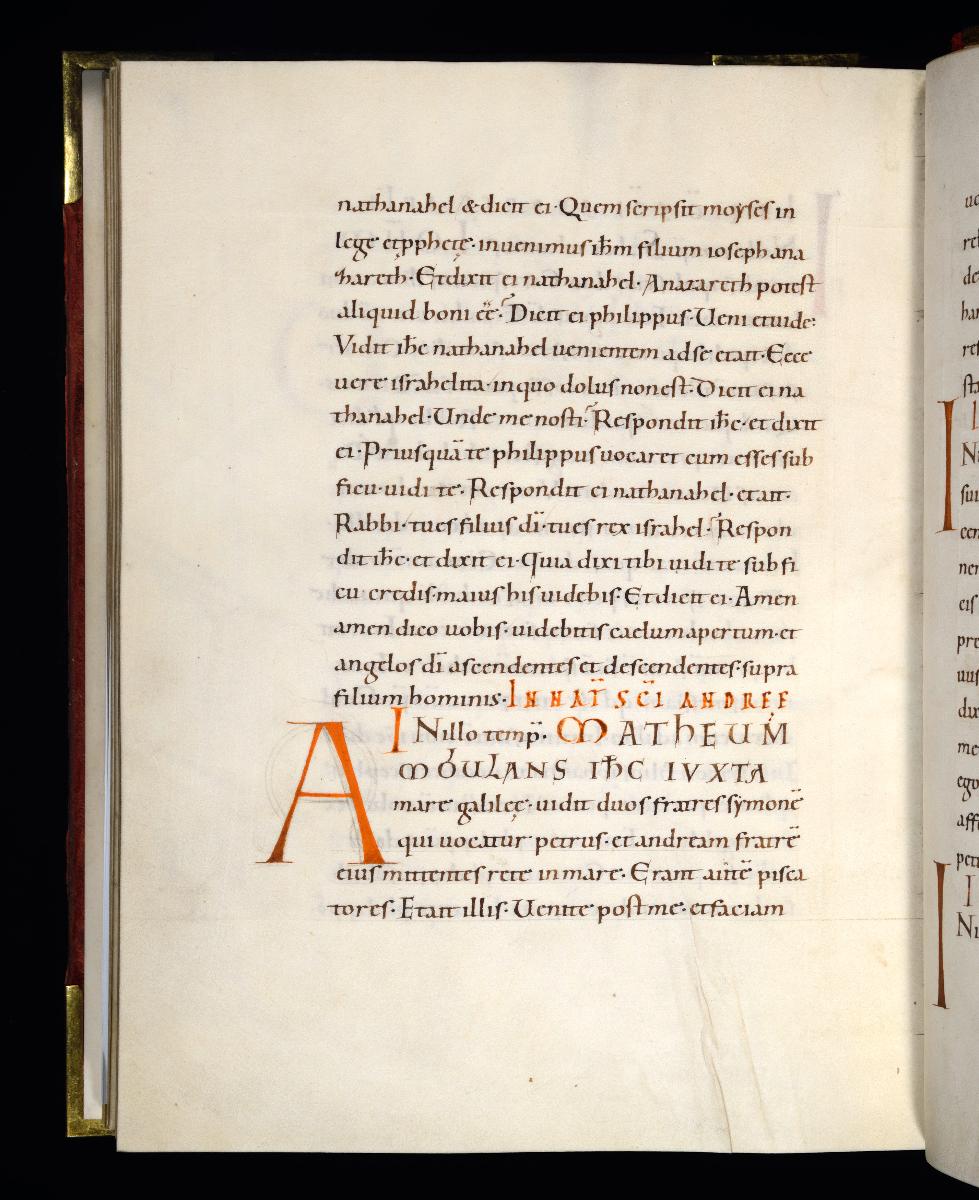 nathanahel & dicit ei · Quem scripsit moyses in
lege et pphetę · inuenimus ihm filium ioseph ana
zareth · Et dixit ei nathanahel · Anazareth potest
aliquid boni eē · Dicit ei philippus · Ueni et uide ·
Vidit ihc nathanahel uenientem ad se et ait · Ecce
uere israhelita · in quo dolus non est · Dicit ei na
thanahel · Unde me nosti · Respondit ihc · et dixit
ei · Priusquā te philippus uocaret cum esses sub
ficu · uidi te · Respondit ei nathanahel · et ait ·
Rabbi · tu es filius dī · tu es rex israhel · Respon
dit ihc · et dixit ei · Quia dixi tibi uidi te sub fi
cu credis · maius his uidebis · Et dicit ei · Amen
amen dico uobis · uidebitis caelum apertum · et
angelos dī ascendentes et descendentes supra
filium hominis · IN NAT̄ SC̄I ANDREĘ
IN illo temp̄ · MATHEUM
AMBULANS IHC IVXTA
mare galileę · uidit duos fratres symonē
qui uocatur petrus · et andream fratrē
eius mittentes rete in mare · Erant aūtē pisca
tores · Et ait illis · Uenite post me · et faciam